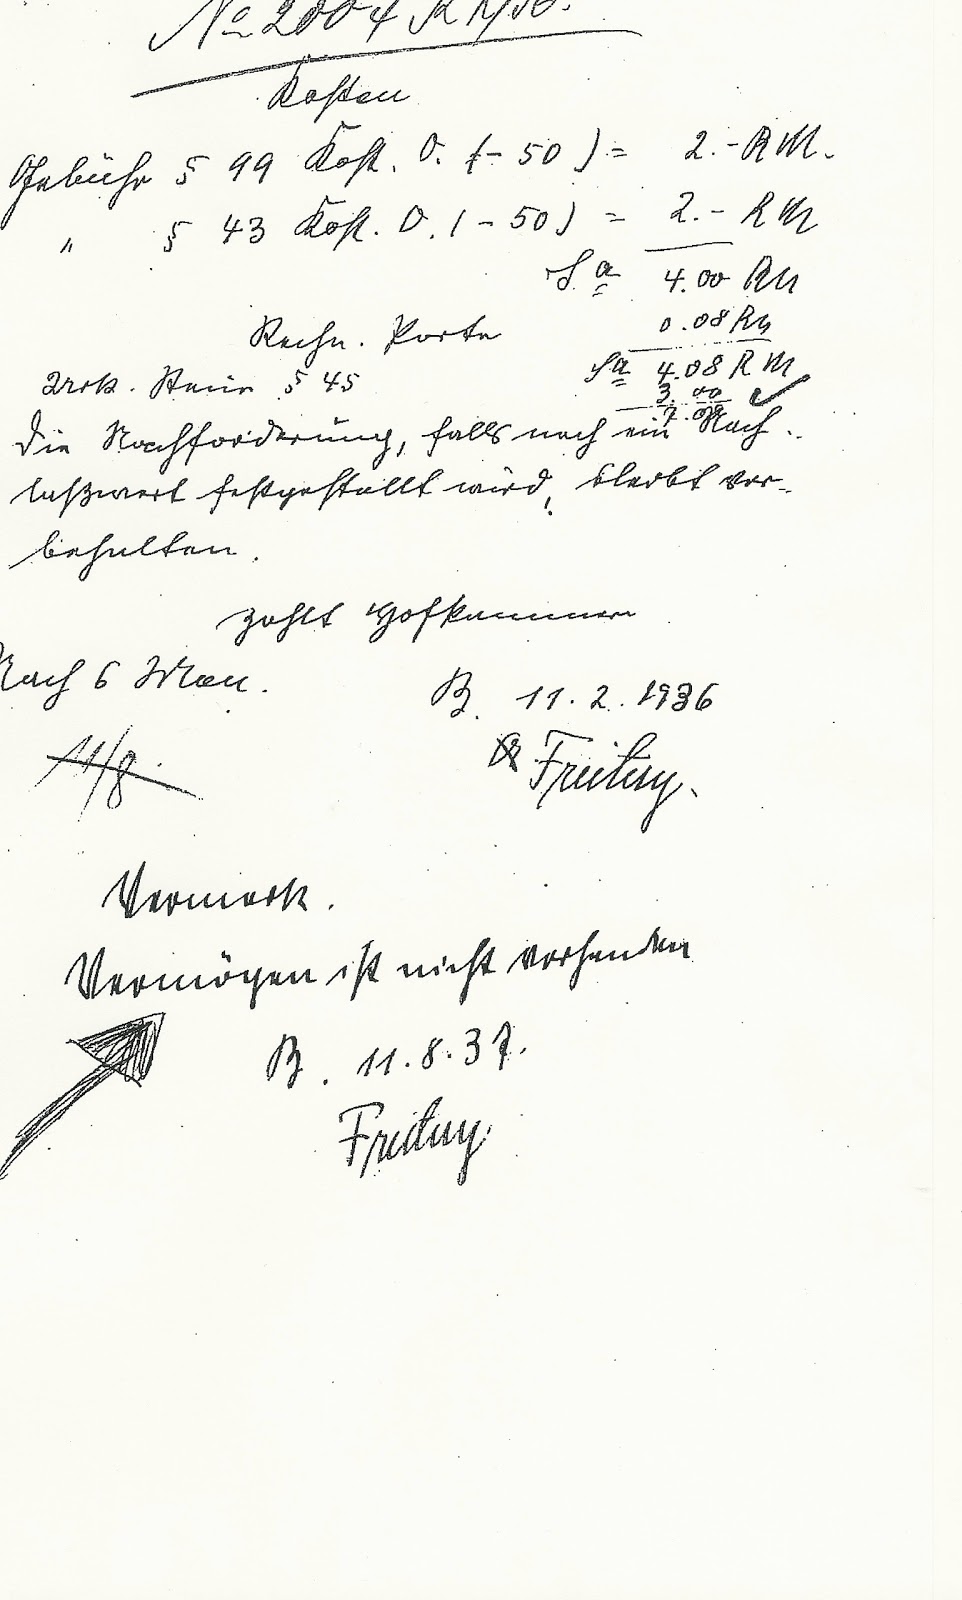 No 2004
Kosten
Gebühr § 99 Kost. O. (- 50) = 2.- RM.
" § 43 Kost. O. (- 50) = 2.- RM
Sa 4.00 RM
Rechn. Porto 0.08 RM
Sa 4.08 RM
§ 45 3.00
7.08
Die Nachforderung, falls noch ein Nach-
laßwert festgestellt wird, bleibt vor-
behalten.
zahlt Hofkammer
Nach 6 Mon. B. 11.2.1936
11/8. Freitag.
Vermerk.
Vermögen ist nicht vorhanden
B. 11.8.37.
Freitag.